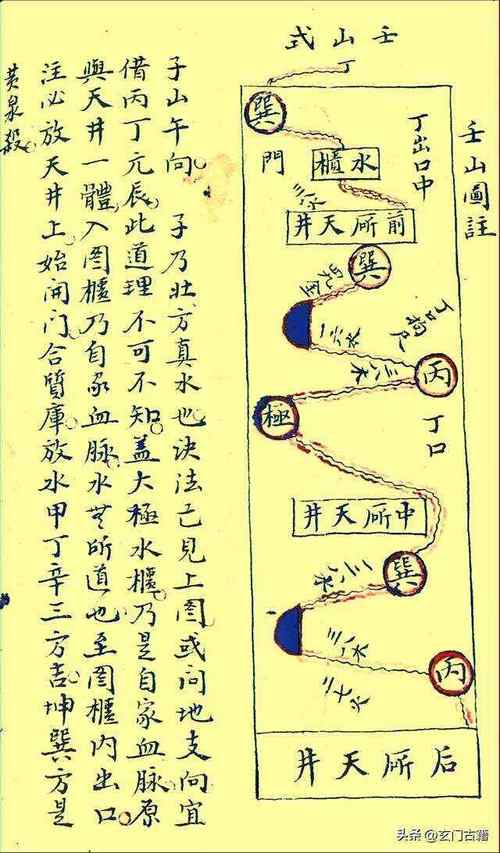 壬山式
壬山圖註
丁出口中
巽
門
水櫃
三八水
前所天井
巽
一六水
三八木
丙
丁口
極
中所天井
巽
二八水
三八六
二七火
丙
后所天井
子山午向 子乃壮方真水也决法已見上圖或问地支向宜
借丙丁元辰此道理不可不知盖大極水櫃乃是自家血脉原
與天井一體入圖櫃乃自家血脉水無所道也至圖櫃内出口
注必放天井上始開门合質庫放水甲丁辛三方吉坤巽方是
黄泉殺
头条@玄门古籍